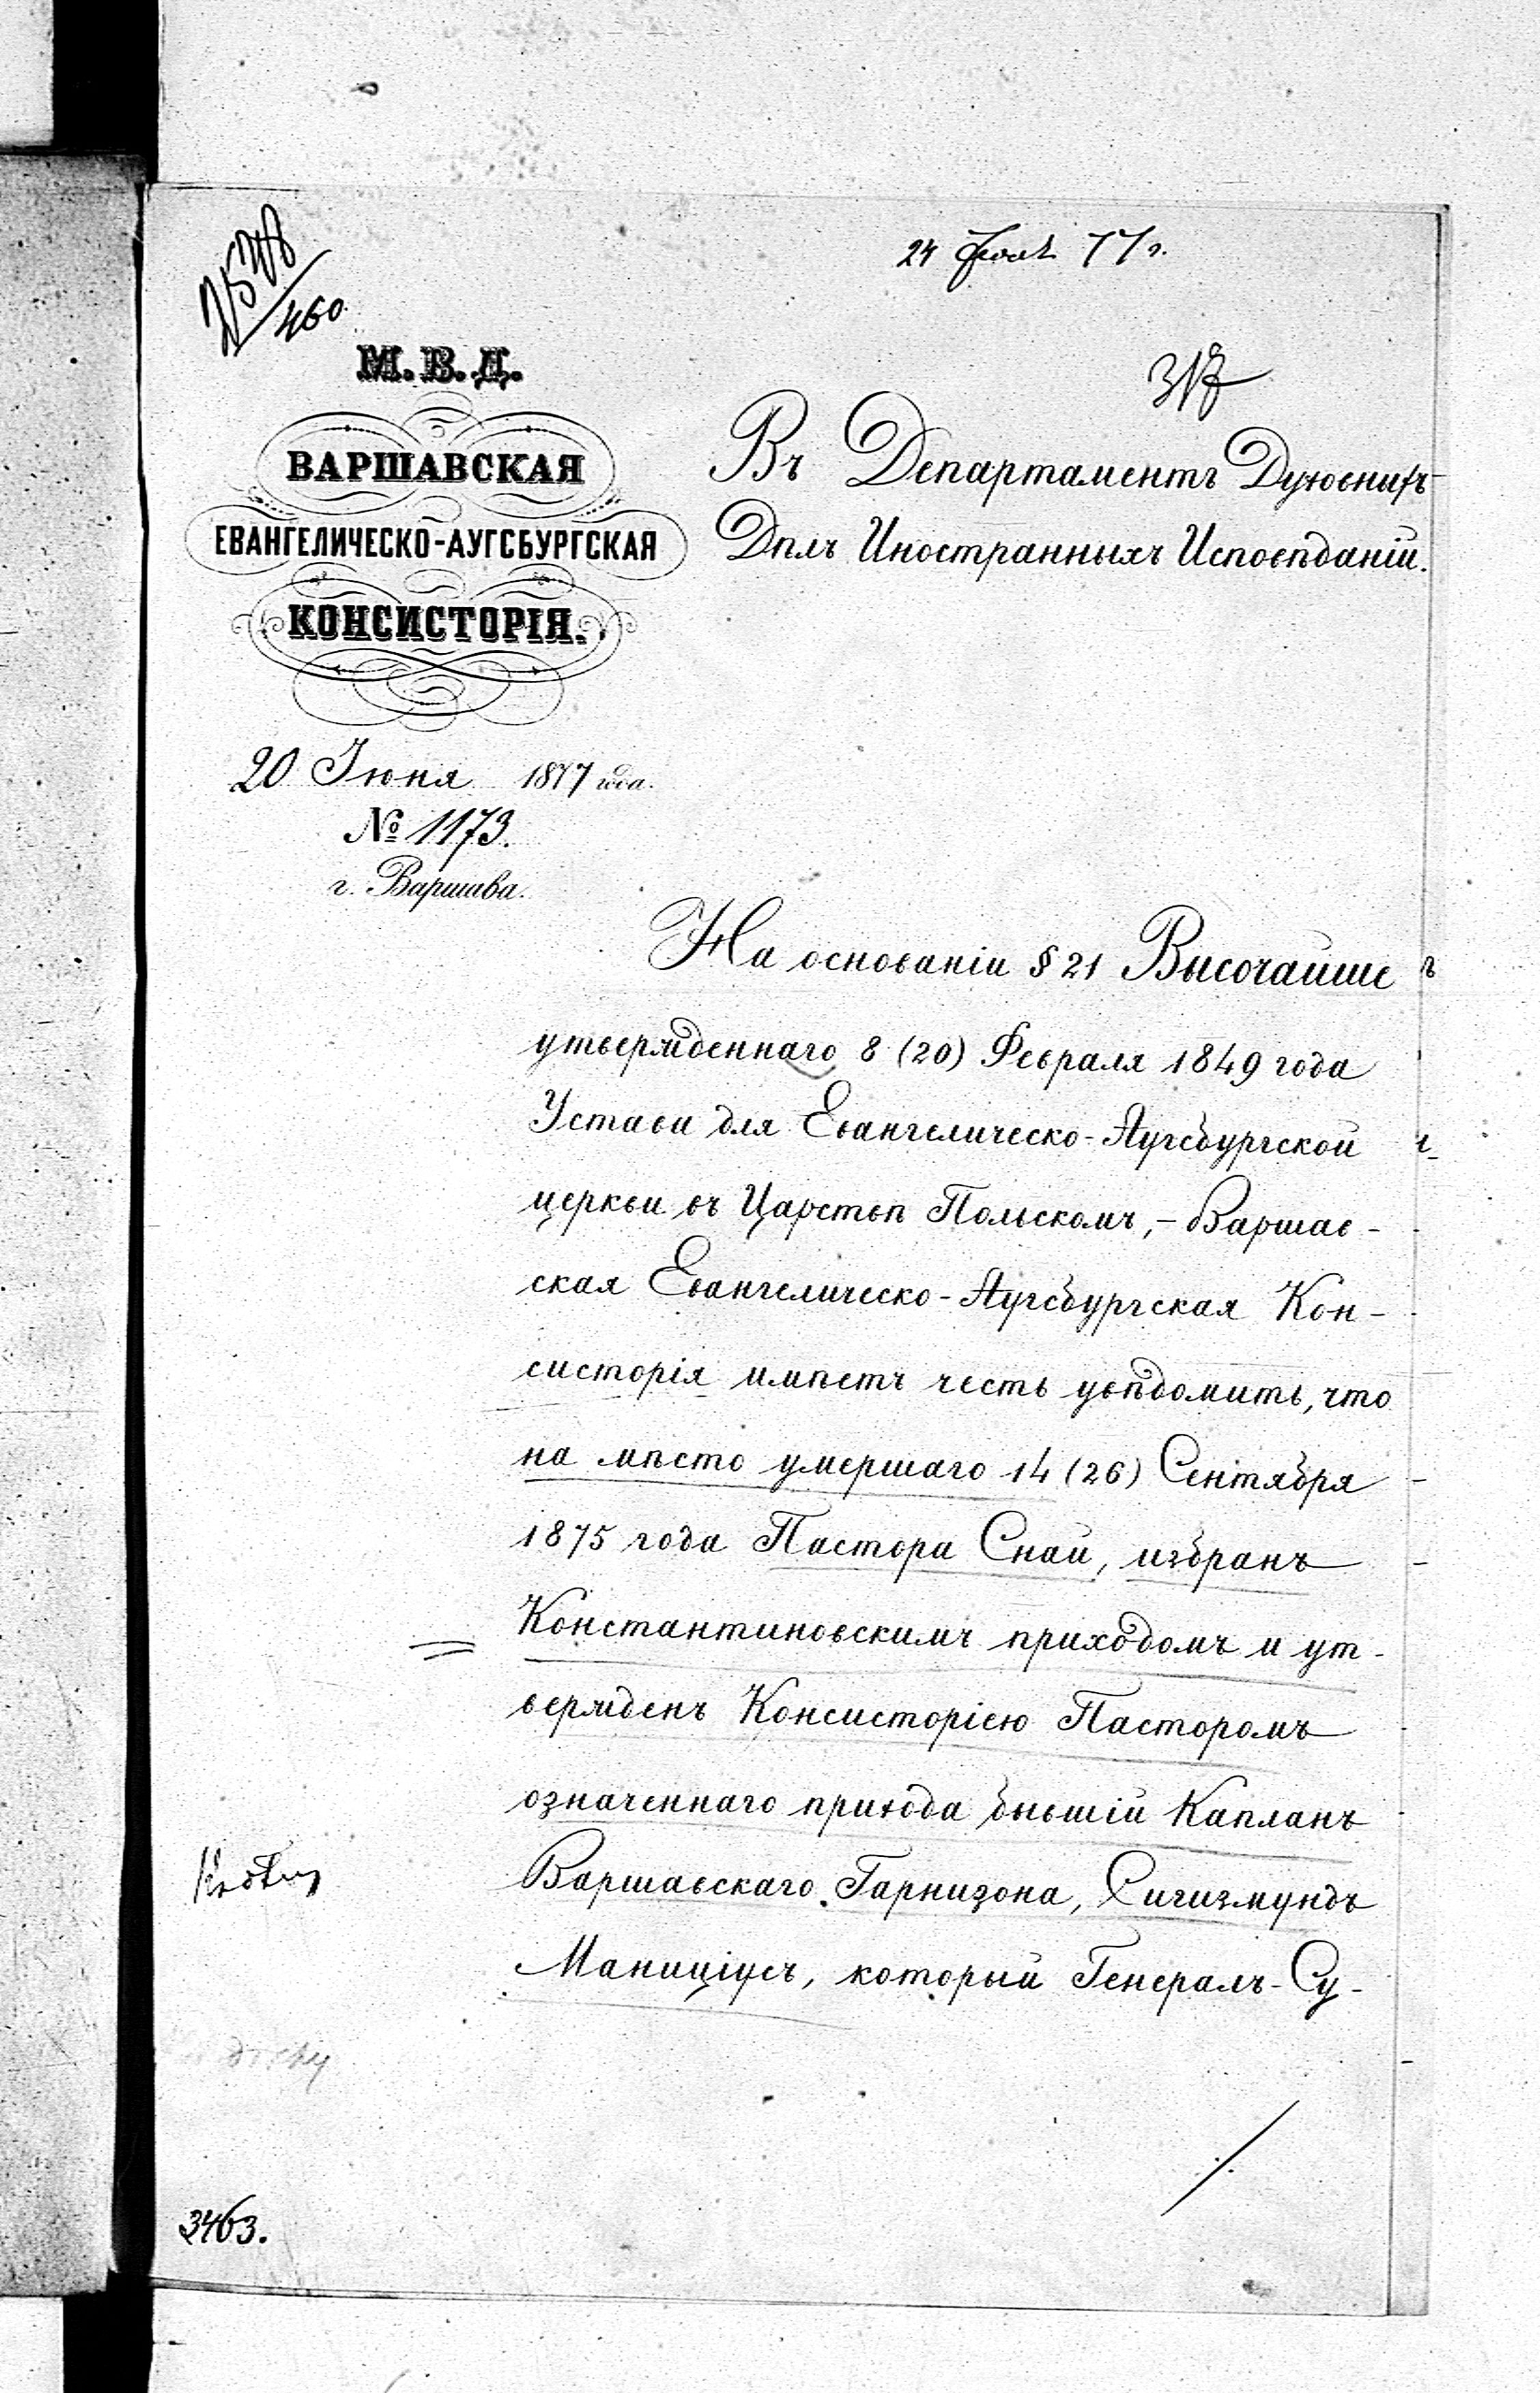 24 77 г.
460
М. В. Д.
ВАРШАВСКАЯ
ЕВАНГЕЛИЧЕСКО-АУГСБУРГСКАЯ
КОНСИСТОРІЯ.
20 Іюня 1877 года.
№ 1173.
г. Варшава.
Въ Департаментъ Духовныхъ
Дѣлъ Иностранныхъ Исповѣданій.
На основаніи § 21 Высочайше
утвержденнаго 8 (20) Февраля 1849 года
Устава для Евангелическо-Аугсбургской
церкви въ Царствѣ Польскомъ, – Варшав-
ская Евангелическо-Аугсбургская Кон-
систорія имѣетъ честь увѣдомить, что
на мѣсто умершаго 14 (26) Сентября
1875 года Пастора Снай, избранъ
Константиновскимъ приходомъ и ут-
вержденъ Консисторіею Пасторомъ
означеннаго прихода бывшій Капланъ
Варшавскаго Гарнизона, Сигизмундъ
Маниціусъ, который Генералъ-Су-
3463.